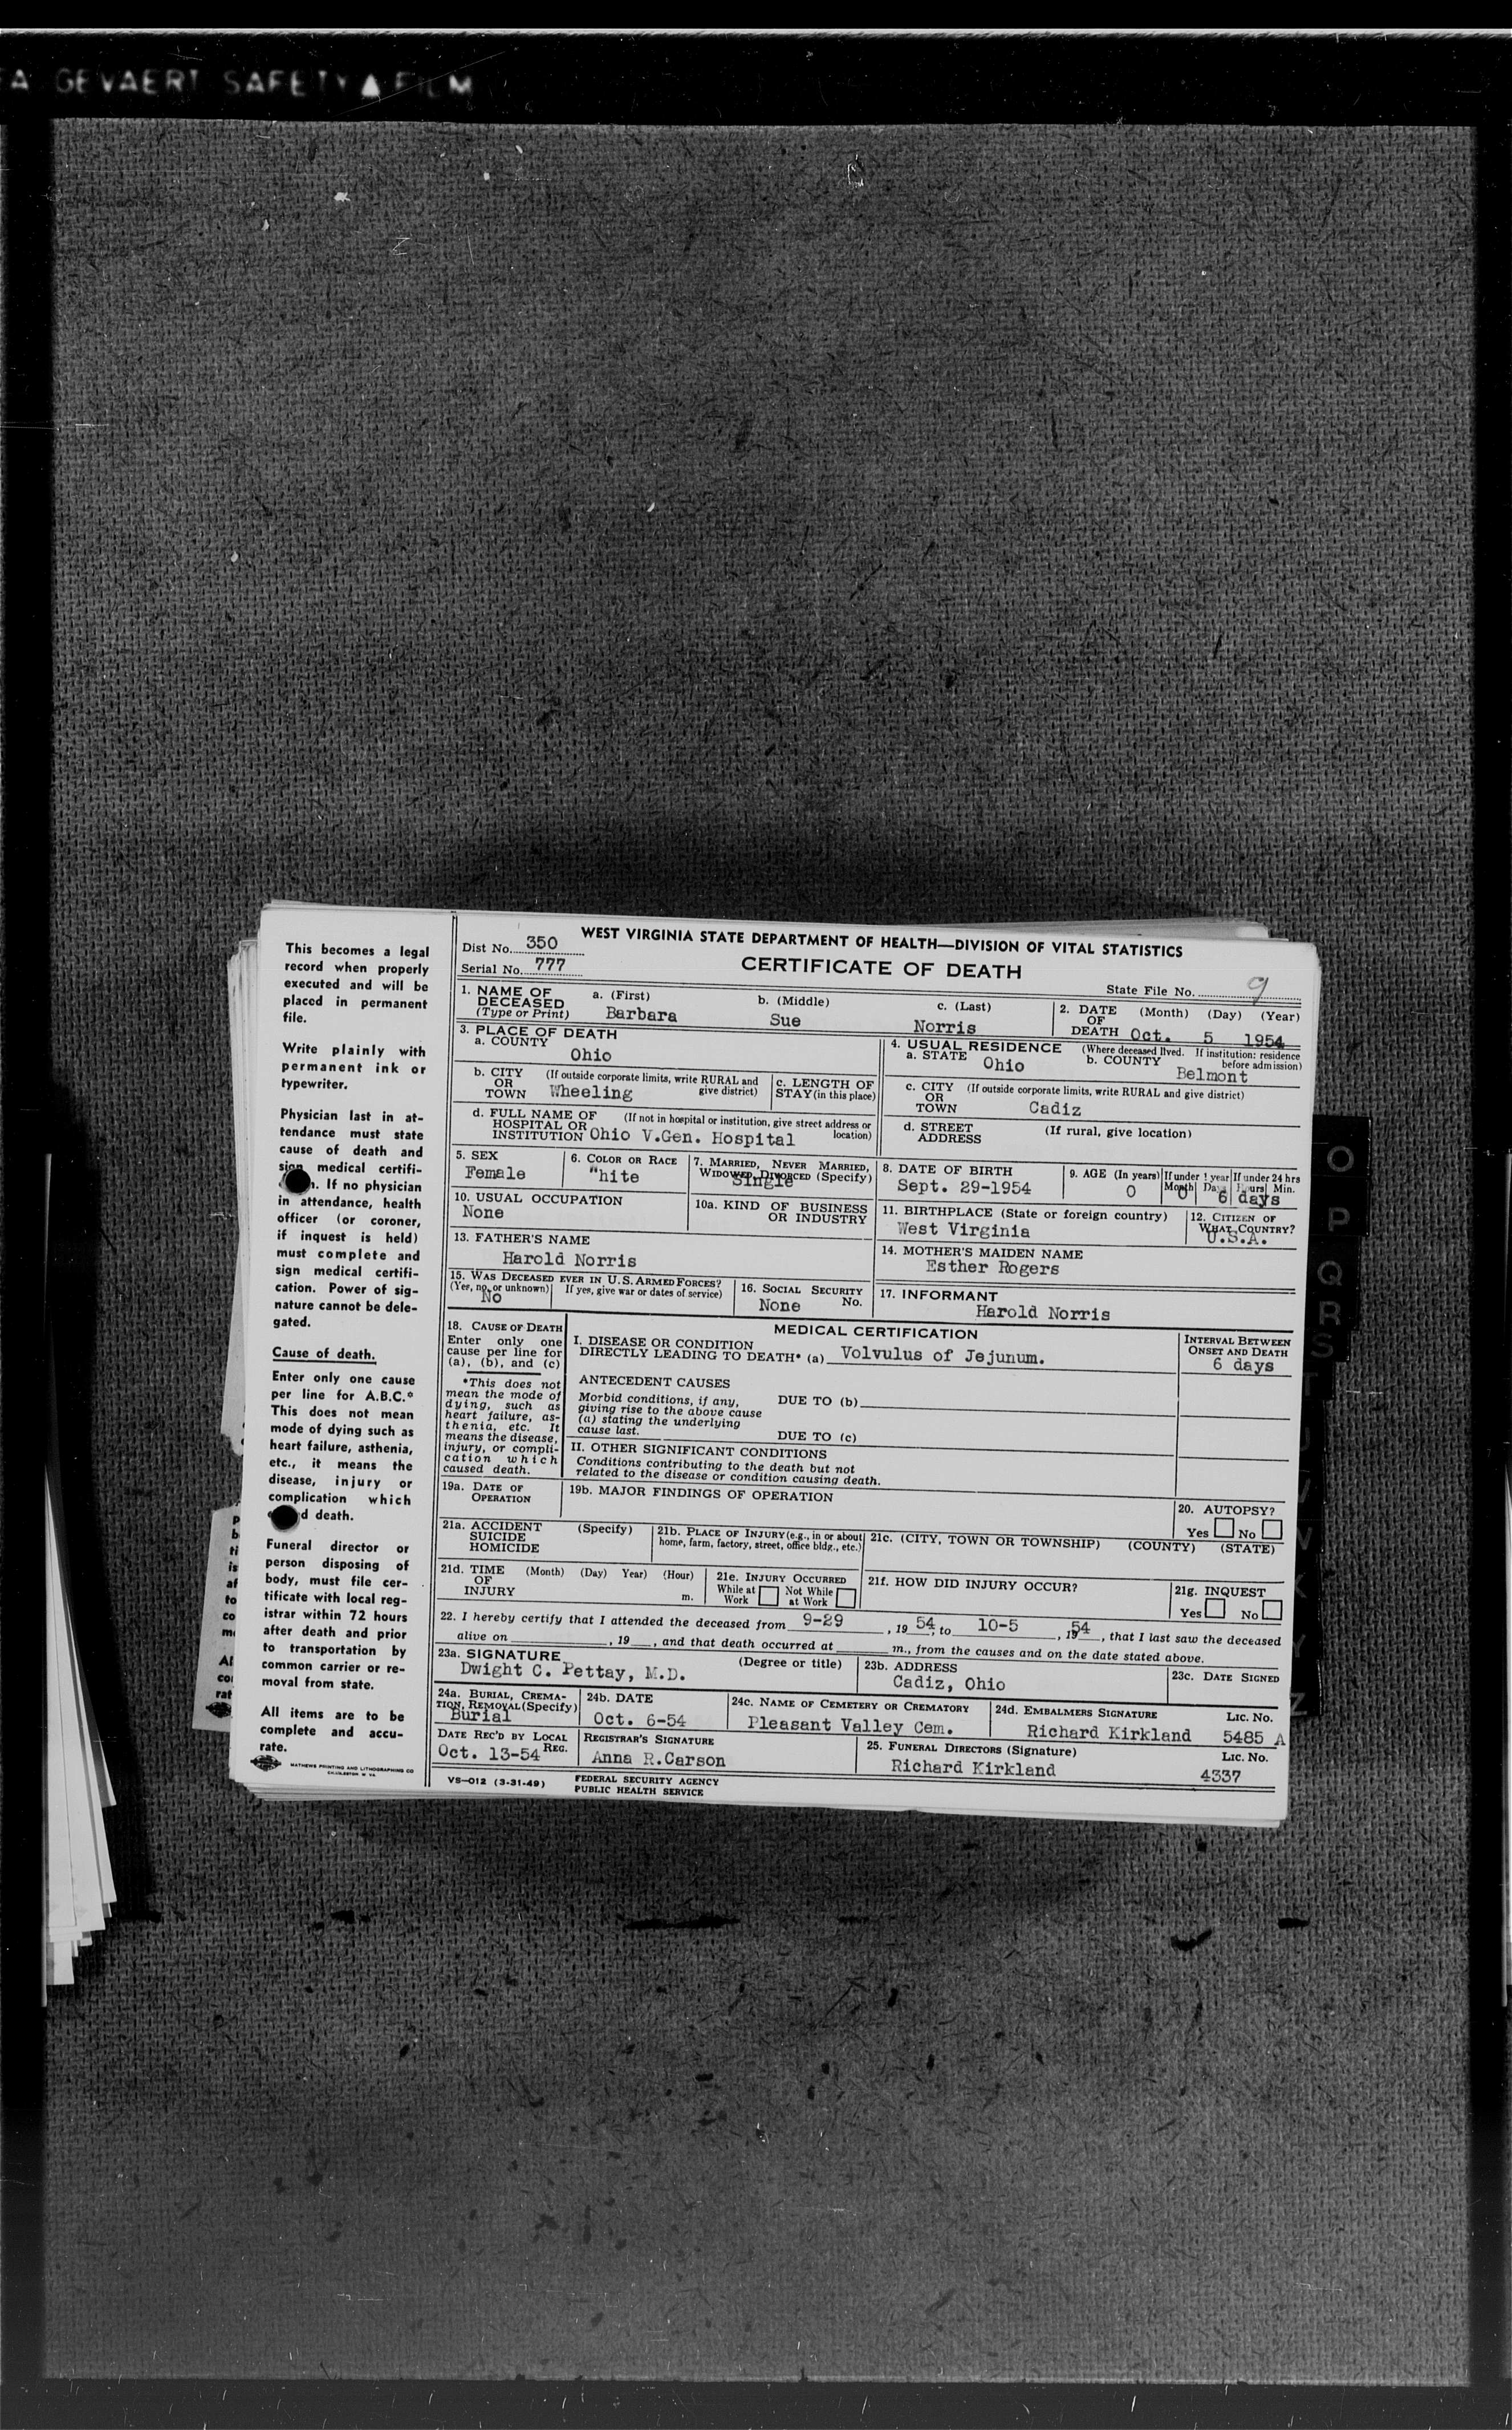 GEVAERT SAFETY ▲ FILM
This becomes a legal
record when properly
executed and will be
placed in permanent
file.
Write plainly with
permanent ink or
typewriter.
Physician last in at-
tendance must state
cause of death and
sign medical certifi-
n. If no physician
in attendance, health
officer (or coroner,
if inquest is held)
must complete and
sign medical certifi-
cation. Power of sig-
nature cannot be dele-
gated.
Cause of death.
Enter only one cause
per line for A.B.C.*
This does not mean
mode of dying such as
heart failure, asthenia,
etc., it means the
disease, injury or
complication which
d death.
Funeral director or
person disposing of
body, must file cer-
tificate with local reg-
istrar within 72 hours
after death and prior
to transportation by
common carrier or re-
moval from state.
All items are to be
complete and accu-
rate.
MATHEWS PRINTING AND LITHOGRAPHING CO
CHARLESTON W VA
WEST VIRGINIA STATE DEPARTMENT OF HEALTH—DIVISION OF VITAL STATISTICS
Dist No. 350
Serial No. 777
CERTIFICATE OF DEATH
State File No. 9
1. NAME OF DECEASED (Type or Print) a. (First) Barbara b. (Middle) Sue c. (Last) Norris
2. DATE OF DEATH (Month) (Day) (Year) Oct. 5 1954
3. PLACE OF DEATH
a. COUNTY Ohio
4. USUAL RESIDENCE (Where deceased lived. If institution: residence before admission)
a. STATE Ohio b. COUNTY Belmont
b. CITY OR TOWN (If outside corporate limits, write RURAL and give district) Wheeling
c. LENGTH OF STAY (in this place)
c. CITY OR TOWN (If outside corporate limits, write RURAL and give district) Cadiz
d. FULL NAME OF HOSPITAL OR INSTITUTION (If not in hospital or institution, give street address or location) Ohio V.Gen. Hospital
d. STREET ADDRESS (If rural, give location)
5. SEX Female
6. COLOR OR RACE "hite
7. MARRIED, NEVER MARRIED, WIDOWED, DIVORCED (Specify) Single
8. DATE OF BIRTH Sept. 29-1954
9. AGE (In years) 0 If under 1 year Month 0 Days 6 If under 24 hrs Hours Min. days
10. USUAL OCCUPATION None
10a. KIND OF BUSINESS OR INDUSTRY
11. BIRTHPLACE (State or foreign country) West Virginia
12. CITIZEN OF WHAT COUNTRY? U.S.A.
13. FATHER'S NAME Harold Norris
14. MOTHER'S MAIDEN NAME Esther Rogers
15. WAS DECEASED EVER IN U.S. ARMED FORCES? (Yes, no, or unknown) No If yes, give war or dates of service)
16. SOCIAL SECURITY No. None
17. INFORMANT Harold Norris
18. CAUSE OF DEATH
Enter only one
cause per line for
(a), (b), and (c)
*This does not
mean the mode of
dying, such as
heart failure, as-
thenia, etc. It
means the disease,
injury, or compli-
cation which
caused death.
MEDICAL CERTIFICATION
INTERVAL BETWEEN ONSET AND DEATH
6 days
I. DISEASE OR CONDITION
DIRECTLY LEADING TO DEATH* (a) Volvulus of Jejunum.
ANTECEDENT CAUSES
Morbid conditions, if any,
giving rise to the above cause
(a) stating the underlying
cause last.
DUE TO (b)
DUE TO (c)
II. OTHER SIGNIFICANT CONDITIONS
Conditions contributing to the death but not
related to the disease or condition causing death.
19a. DATE OF OPERATION
19b. MAJOR FINDINGS OF OPERATION
20. AUTOPSY?
Yes No
21a. ACCIDENT SUICIDE HOMICIDE (Specify)
21b. PLACE OF INJURY (e.g., in or about home, farm, factory, street, office bldg., etc.)
21c. (CITY, TOWN OR TOWNSHIP) (COUNTY) (STATE)
21d. TIME OF INJURY (Month) (Day) Year) (Hour) m.
21e. INJURY OCCURRED
While at Work Not While at Work
21f. HOW DID INJURY OCCUR?
21g. INQUEST
Yes No
22. I hereby certify that I attended the deceased from 9-29, 19 54, to 10-5, 19 54, that I last saw the deceased
alive on , 19 , and that death occurred at m., from the causes and on the date stated above.
23a. SIGNATURE (Degree or title) Dwight C. Pettay, M.D.
23b. ADDRESS Cadiz, Ohio
23c. DATE SIGNED
24a. BURIAL, CREMATION, REMOVAL (Specify) Burial
24b. DATE Oct. 6-54
24c. NAME OF CEMETERY OR CREMATORY Pleasant Valley Cem.
24d. EMBALMERS SIGNATURE Richard Kirkland LIC. NO. 5485 A
DATE REC'D BY LOCAL REG. Oct. 13-54
REGISTRAR'S SIGNATURE Anna R.Carson
25. FUNERAL DIRECTORS (Signature) Richard Kirkland LIC. NO. 4337
VS—012 (3-31-49)
FEDERAL SECURITY AGENCY
PUBLIC HEALTH SERVICE
O
P
Q
R
S
T
Z